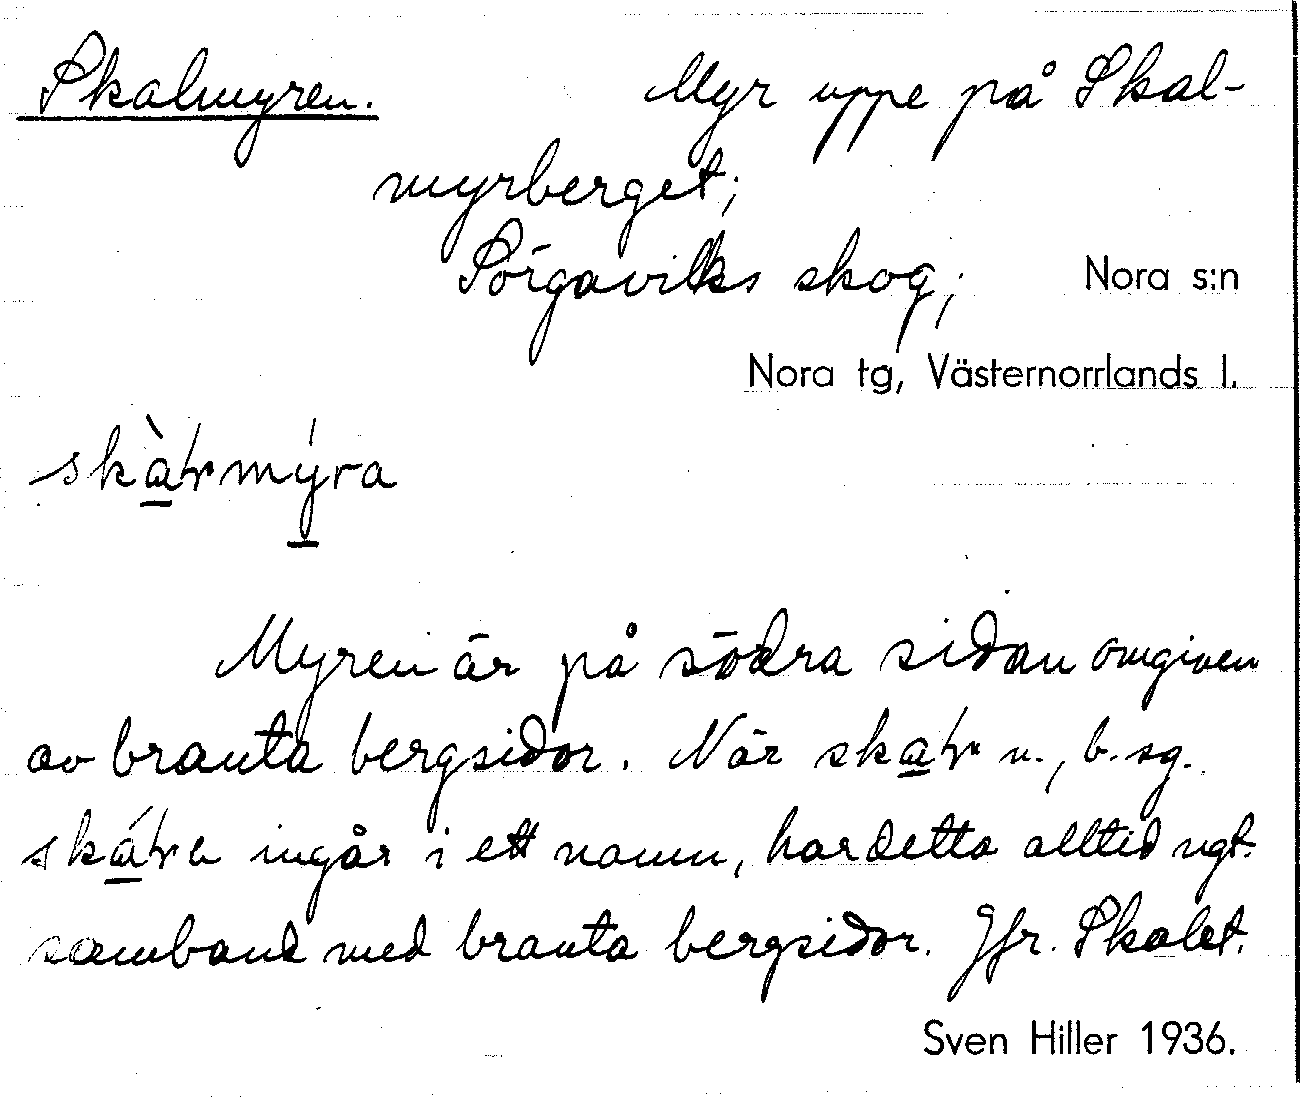 Skalmyren. Myr uppe på Skal-
myrberget;
Sörgaviks skog; Nora s:n
Nora tg, Västernorrlands l.
Myren är på södra sidan omgiven
av branta bergsidor. När n., b.sg.
ingår i ett namn, har detta alltid ngt.
samband med branta bergsidor. Jfr. Skalet.
Sven Hiller 1936.